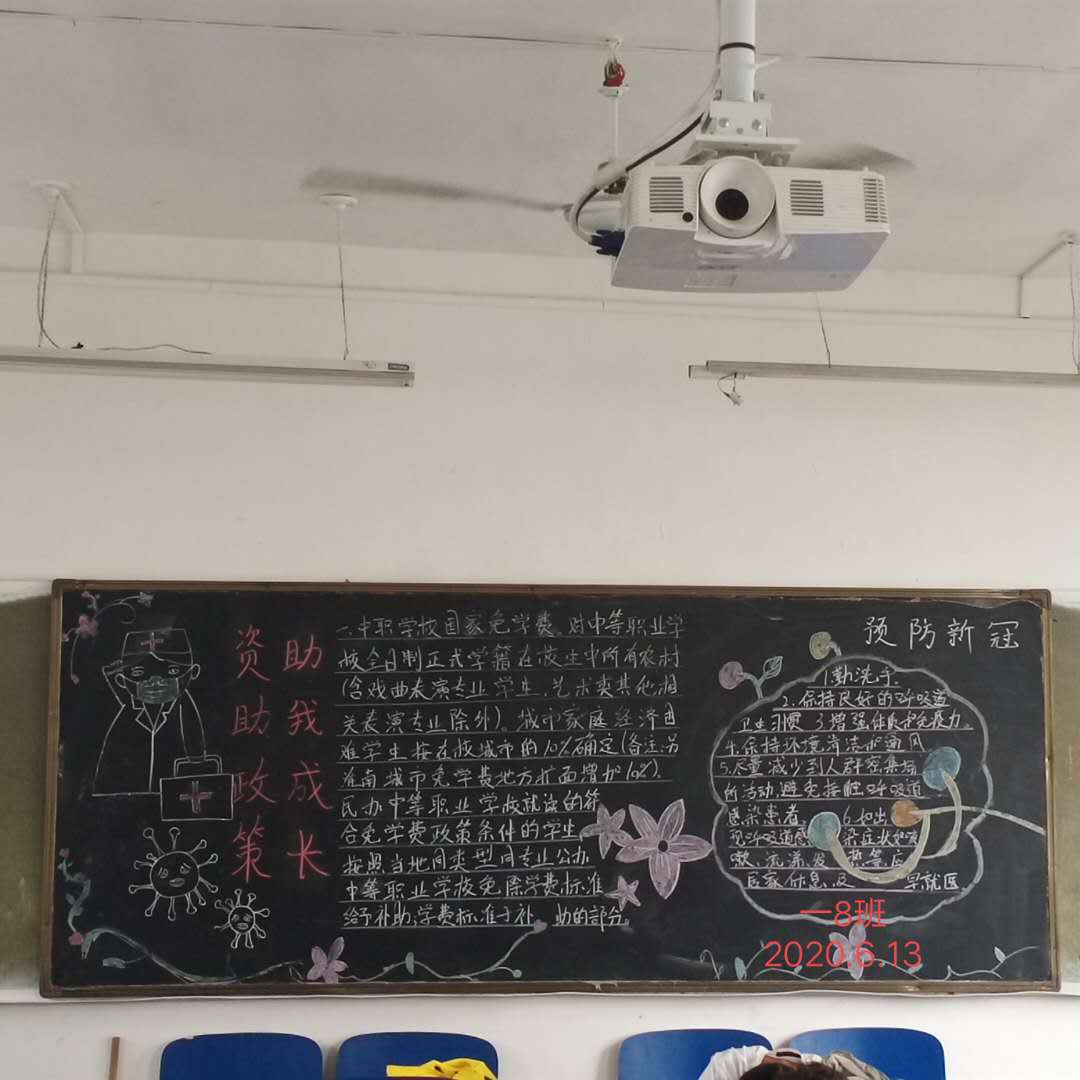 资助政策
助我成长
一、中职学校国家免学费,对中等职业学
校全日制正式学籍在校生中所有农村
(含戏曲表演专业学生,艺术类其他相
关表演专业除外)。城市家庭经济困
难学生按在校城市的10%确定(备注:
城市免学费地方扩面增加10%)。
民办中等职业学校就读的符
合免学费政策条件的学生,
按照当地同类型同专业公办
中等职业学校免除学费标准
给予补助,学费标准于补 助的部分。
预防新冠
1勤洗手
2.保持良好的呼吸道
卫生习惯 3增强体质和免疫力。
4.保持环境清洁和通风
5.尽量减少到人群密集场
所活动,避免接触呼吸道
感染患者。 6.如出
现呼吸道感 染症状如咳
嗽、流涕、发 热等,应
居家休息,及 早就医
一8班
2020.6.13